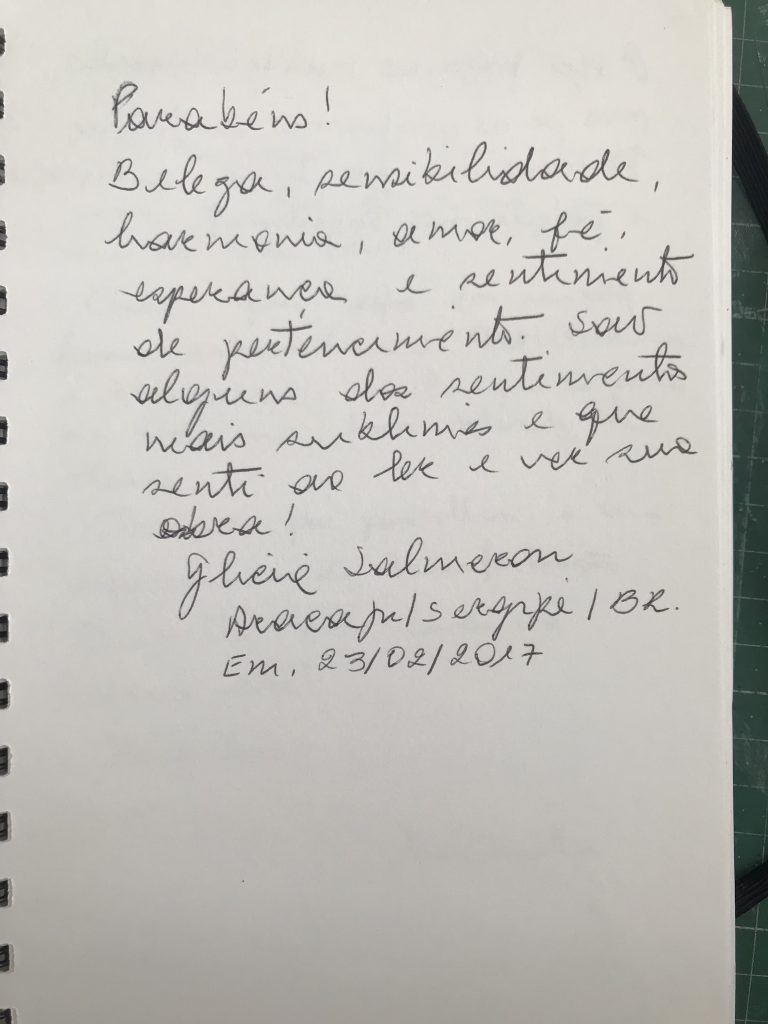 Parabéns!
Beleza, sensibilidade,
harmonia, amor, fé,
esperança e sentimento
de pertencimento. São
alguns dos sentimentos
mais sublimes e que
senti ao ler e ver sua
obra!
Salmeron
Aracaju/Sergipe/BR.
Em, 23/02/2017